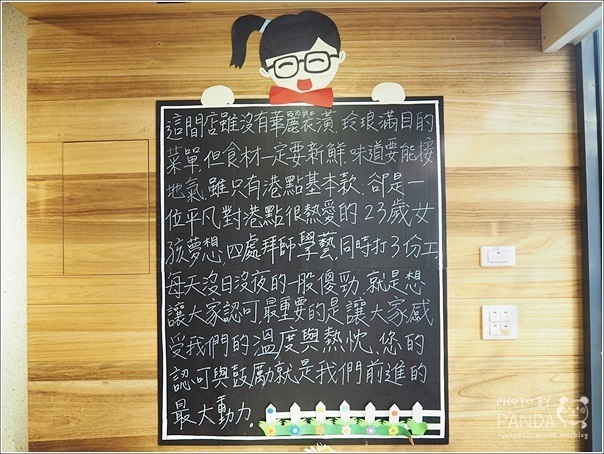 這間店雖沒有華麗裝潢.玲琅滿目的
菜單,但食材一定要新鮮,味道要能接
地氣.雖只有港點基本款.卻是一
位平凡對港點很熱愛的23歲女
孩夢想.四處拜師學藝.同時打3份工.
每天沒日沒夜的一股傻勁.就是想
讓大家認可.最重要的是讓大家感
受我們的溫度與熱忱.您的
認可與鼓勵就是我們前進的
最大動力.
PHOTO BY
PANDA